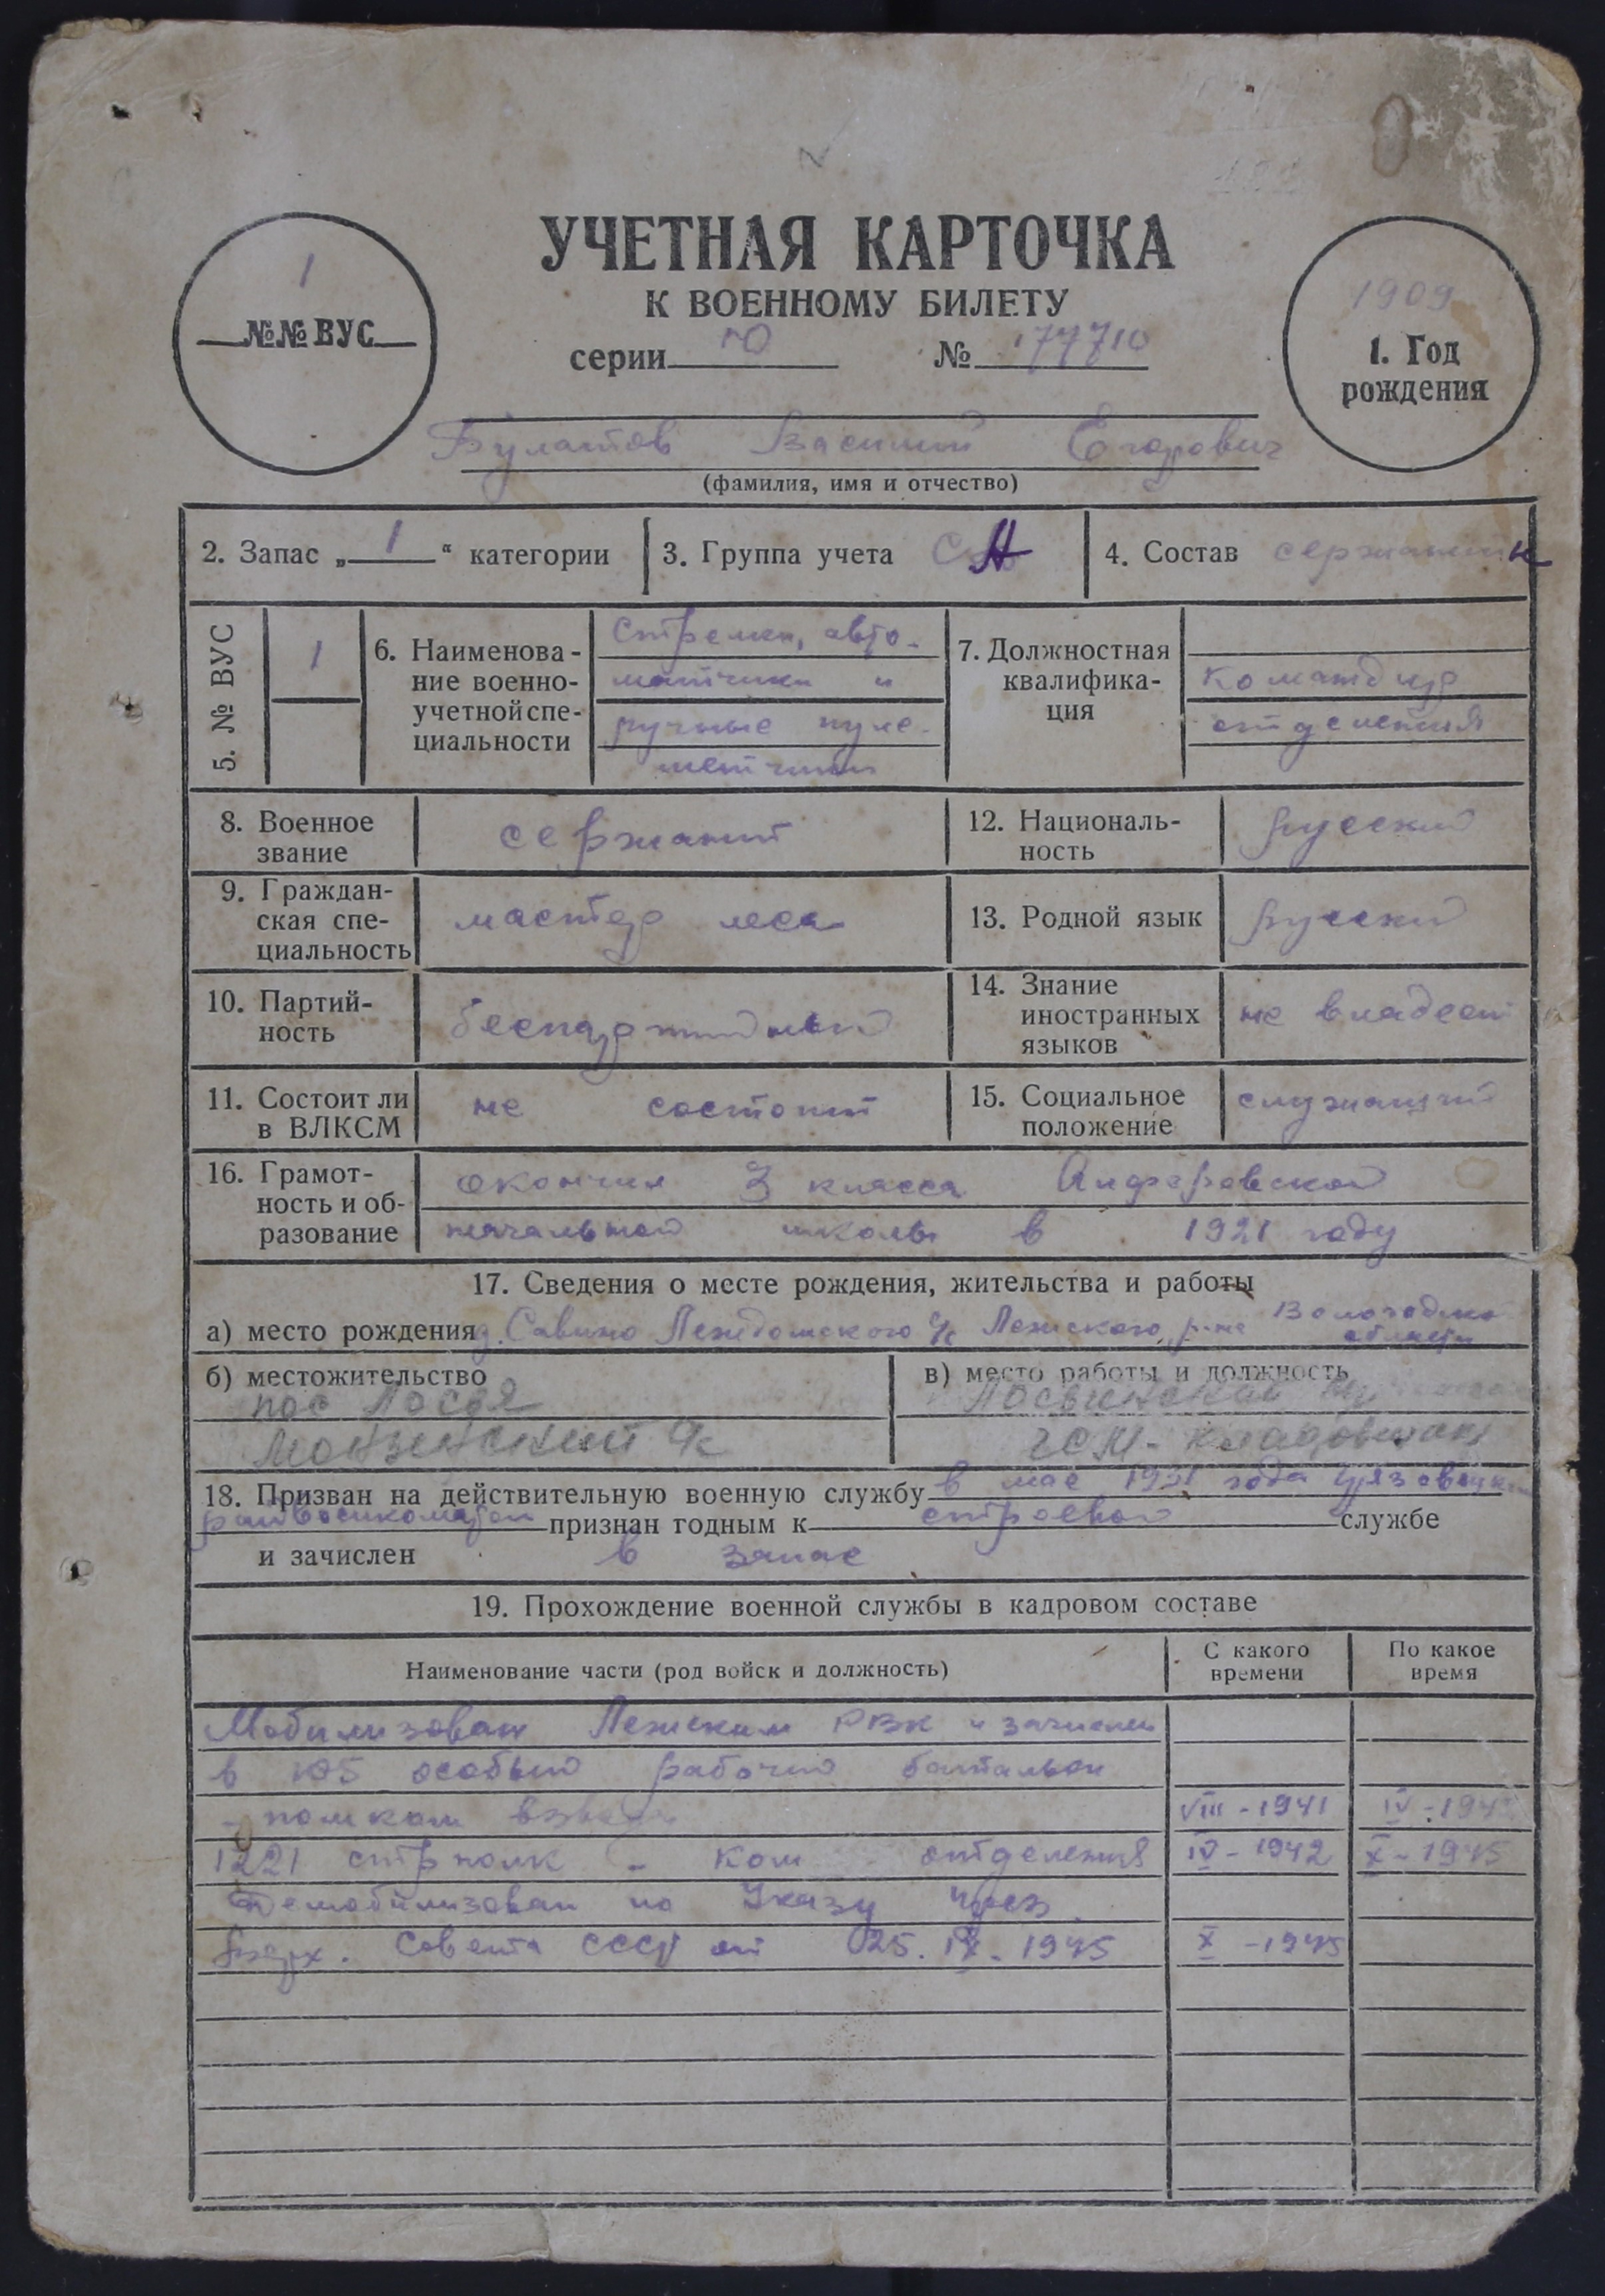 УЧЕТНАЯ КАРТОЧКА
К ВОЕННОМУ БИЛЕТУ
серии Ю № 177710
1
№№ ВУС
1909
1. Год
рождения
Булатов Василий Егорович
(фамилия, имя и отчество)
2. Запас „ 1 “ категории
3. Группа учета СА
4. Состав
5. № ВУС
1
6. Наименова-
ние военно-
учетной спе-
циальности
Стрелки, авто-
матчики и
ручные пуле-
метчики
7. Должностная
квалифика-
ция
командир
отделения
8. Военное
звание
сержант
12. Националь-
ность
русский
9. Граждан-
ская спе-
циальность
мастер леса
13. Родной язык
русский
10. Партий-
ность
беспартийный
14. Знание
иностранных
языков
не владеет
11. Состоит ли
в ВЛКСМ
не состоит
15. Социальное
положение
служащий
16. Грамот-
ность и об-
разование
окончил 3 класса Анферовской
начальной школы в 1921 году
17. Сведения о месте рождения, жительства и работы
а) место рождения д. Савино Леждомского с/с Лежского р-на Вологодской
области
б) местожительство
пос Лостя
Монзенский с/с
в) место работы и должность
ГСМ - кладовщик
18. Призван на действительную военную службу в мае 1931 года Грязовецким
райвоенкоматом признан годным к строевой службе
и зачислен в запас
19. Прохождение военной службы в кадровом составе
Наименование части (род войск и должность)
С какого
времени
По какое
время
Мобилизован Лежским РВК и зачислен
в 105 особый рабочий батальон
- помком взвода VIII - 1941 IV - 194
1221 стр полк - ком отделения IV - 1942 X - 1945
Демобилизован по Указу през
Верх. Совета СССР от 25. IX. 1945 X - 1945